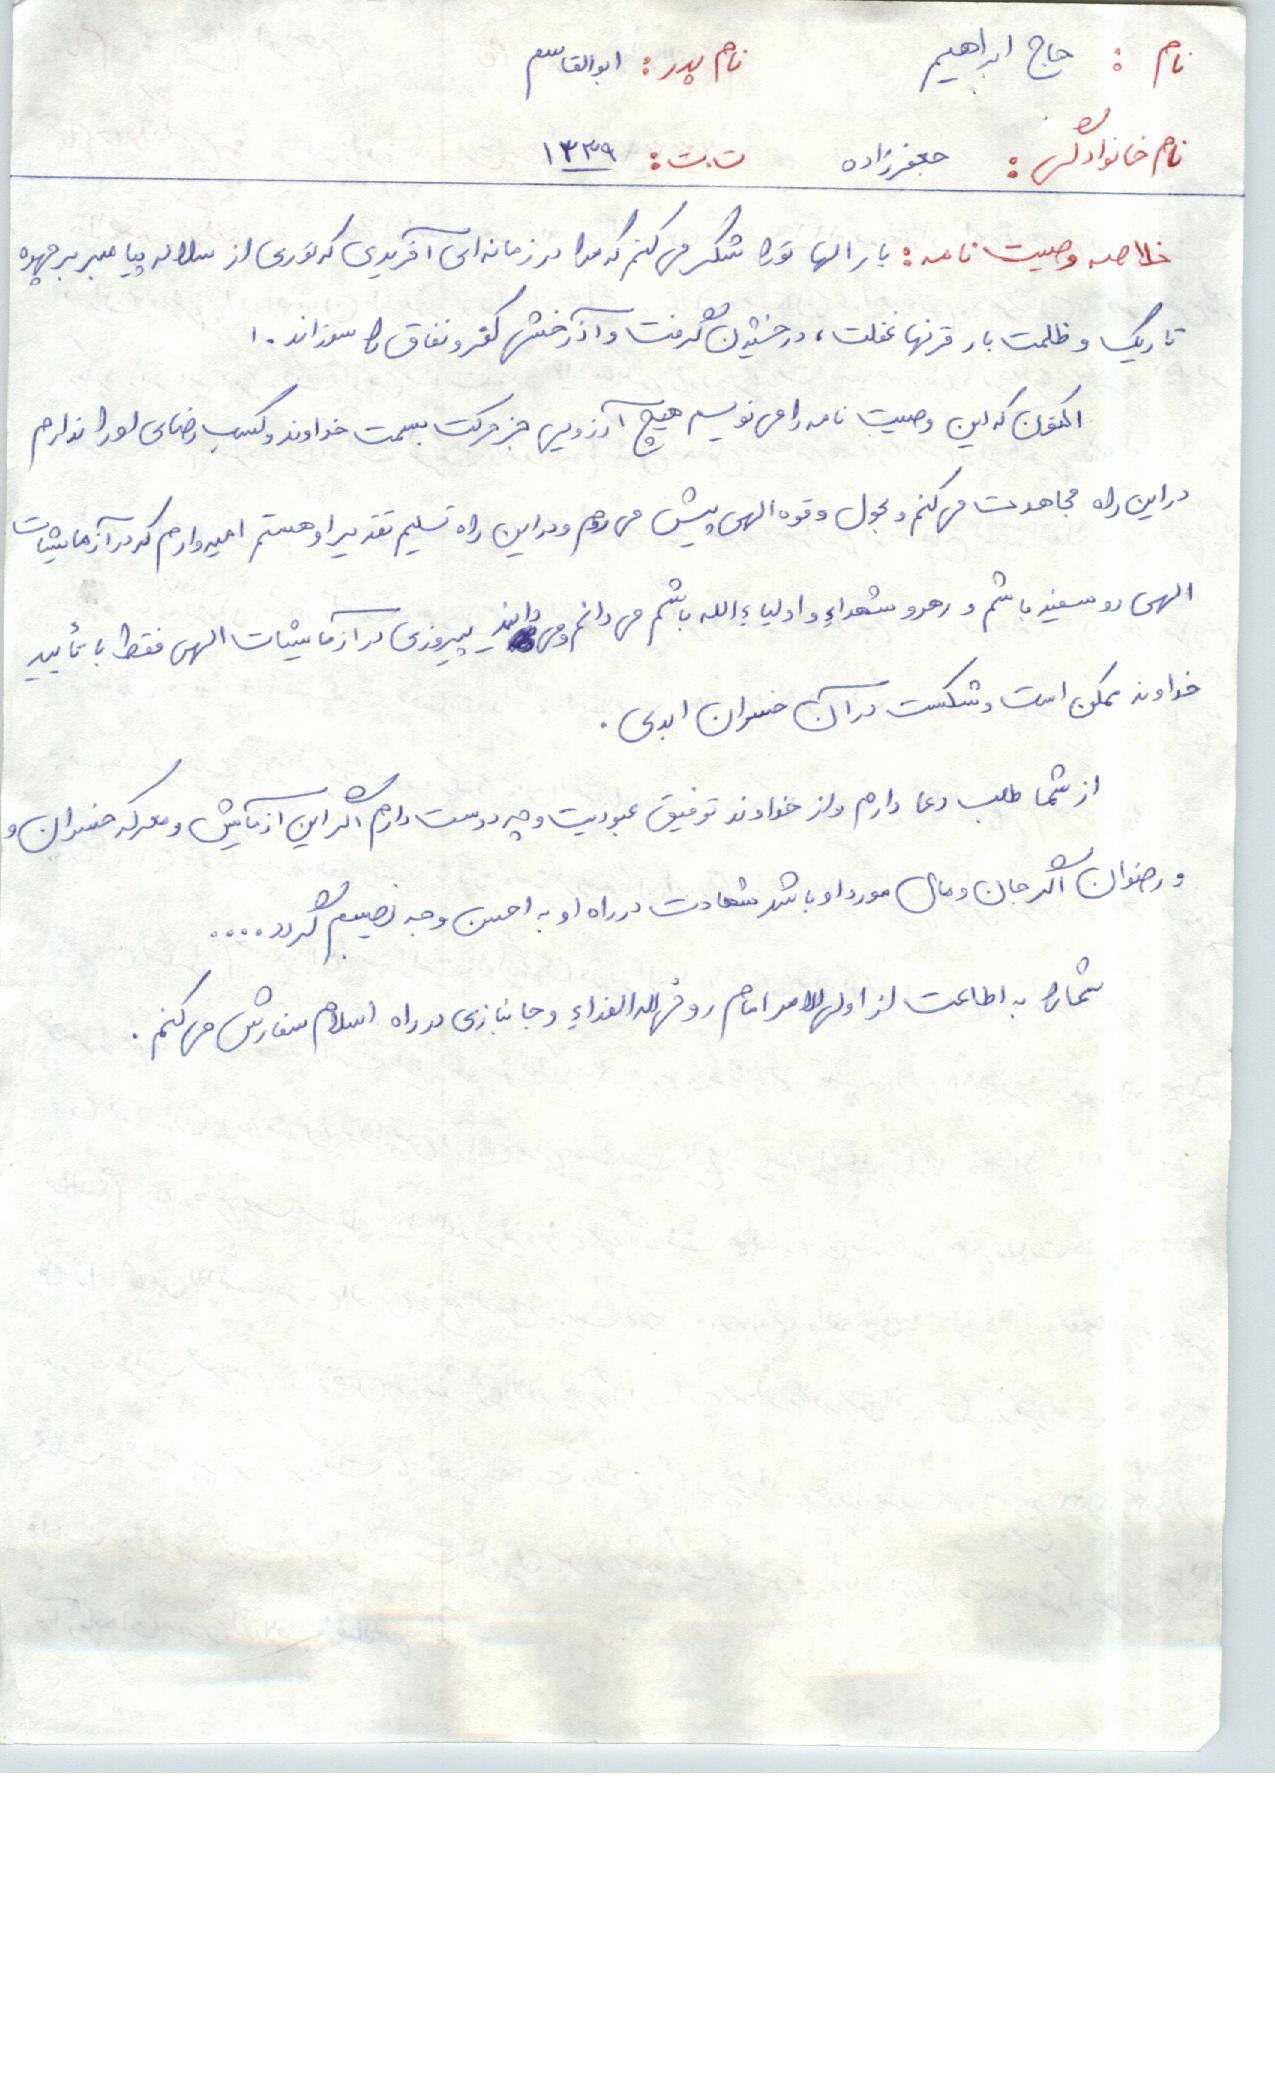 نام : حاج ابراهیم نام پدر : ابوالقاسم
نام خانوادگی : جعفرزاده ت.ت : ۱۳۳۹
خلاصه وصیت نامه : بارالها تو را شکر می کنم که مرا در زمانه ای آفریدی که نوری از سلاله پیامبر بر چهره
تاریک و ظلمت بار قرنها غفلت ، درخشیدن گرفت و آذرخشها کفر و نفاق را سوزاند . ا
اکنون که این وصیت نامه را می نویسم هیچ آرزویی جز حرکت بسمت خداوند و کسب رضای او را ندارم
در این راه مجاهدت می کنم و بحول و قوه الهی پیش می روم و در این راه تسلیم تقدیر او هستم امیدوارم که در آزمایشات
الهی رو سفید باشم و رهرو شهداء و اولیاء الله باشم می دانم و می دانید پیروزی در آزمایشات الهی فقط با تأیید
خداوند ممکن است و شکست در آن خسران ابدی .
از شما طلب دعا دارم و از خداوند توفیق عبودیت و چه دوست دارم اگر این آزمایش و معرکه خسران و
و رضوان اگر جان و مال مورد او باشد شهادت در راه او به احسن وجه نصیبم گردد ....
شما را به اطاعت از اولی الامر امام روحی له الفداء و جانبازی در راه اسلام سفارش می کنم .